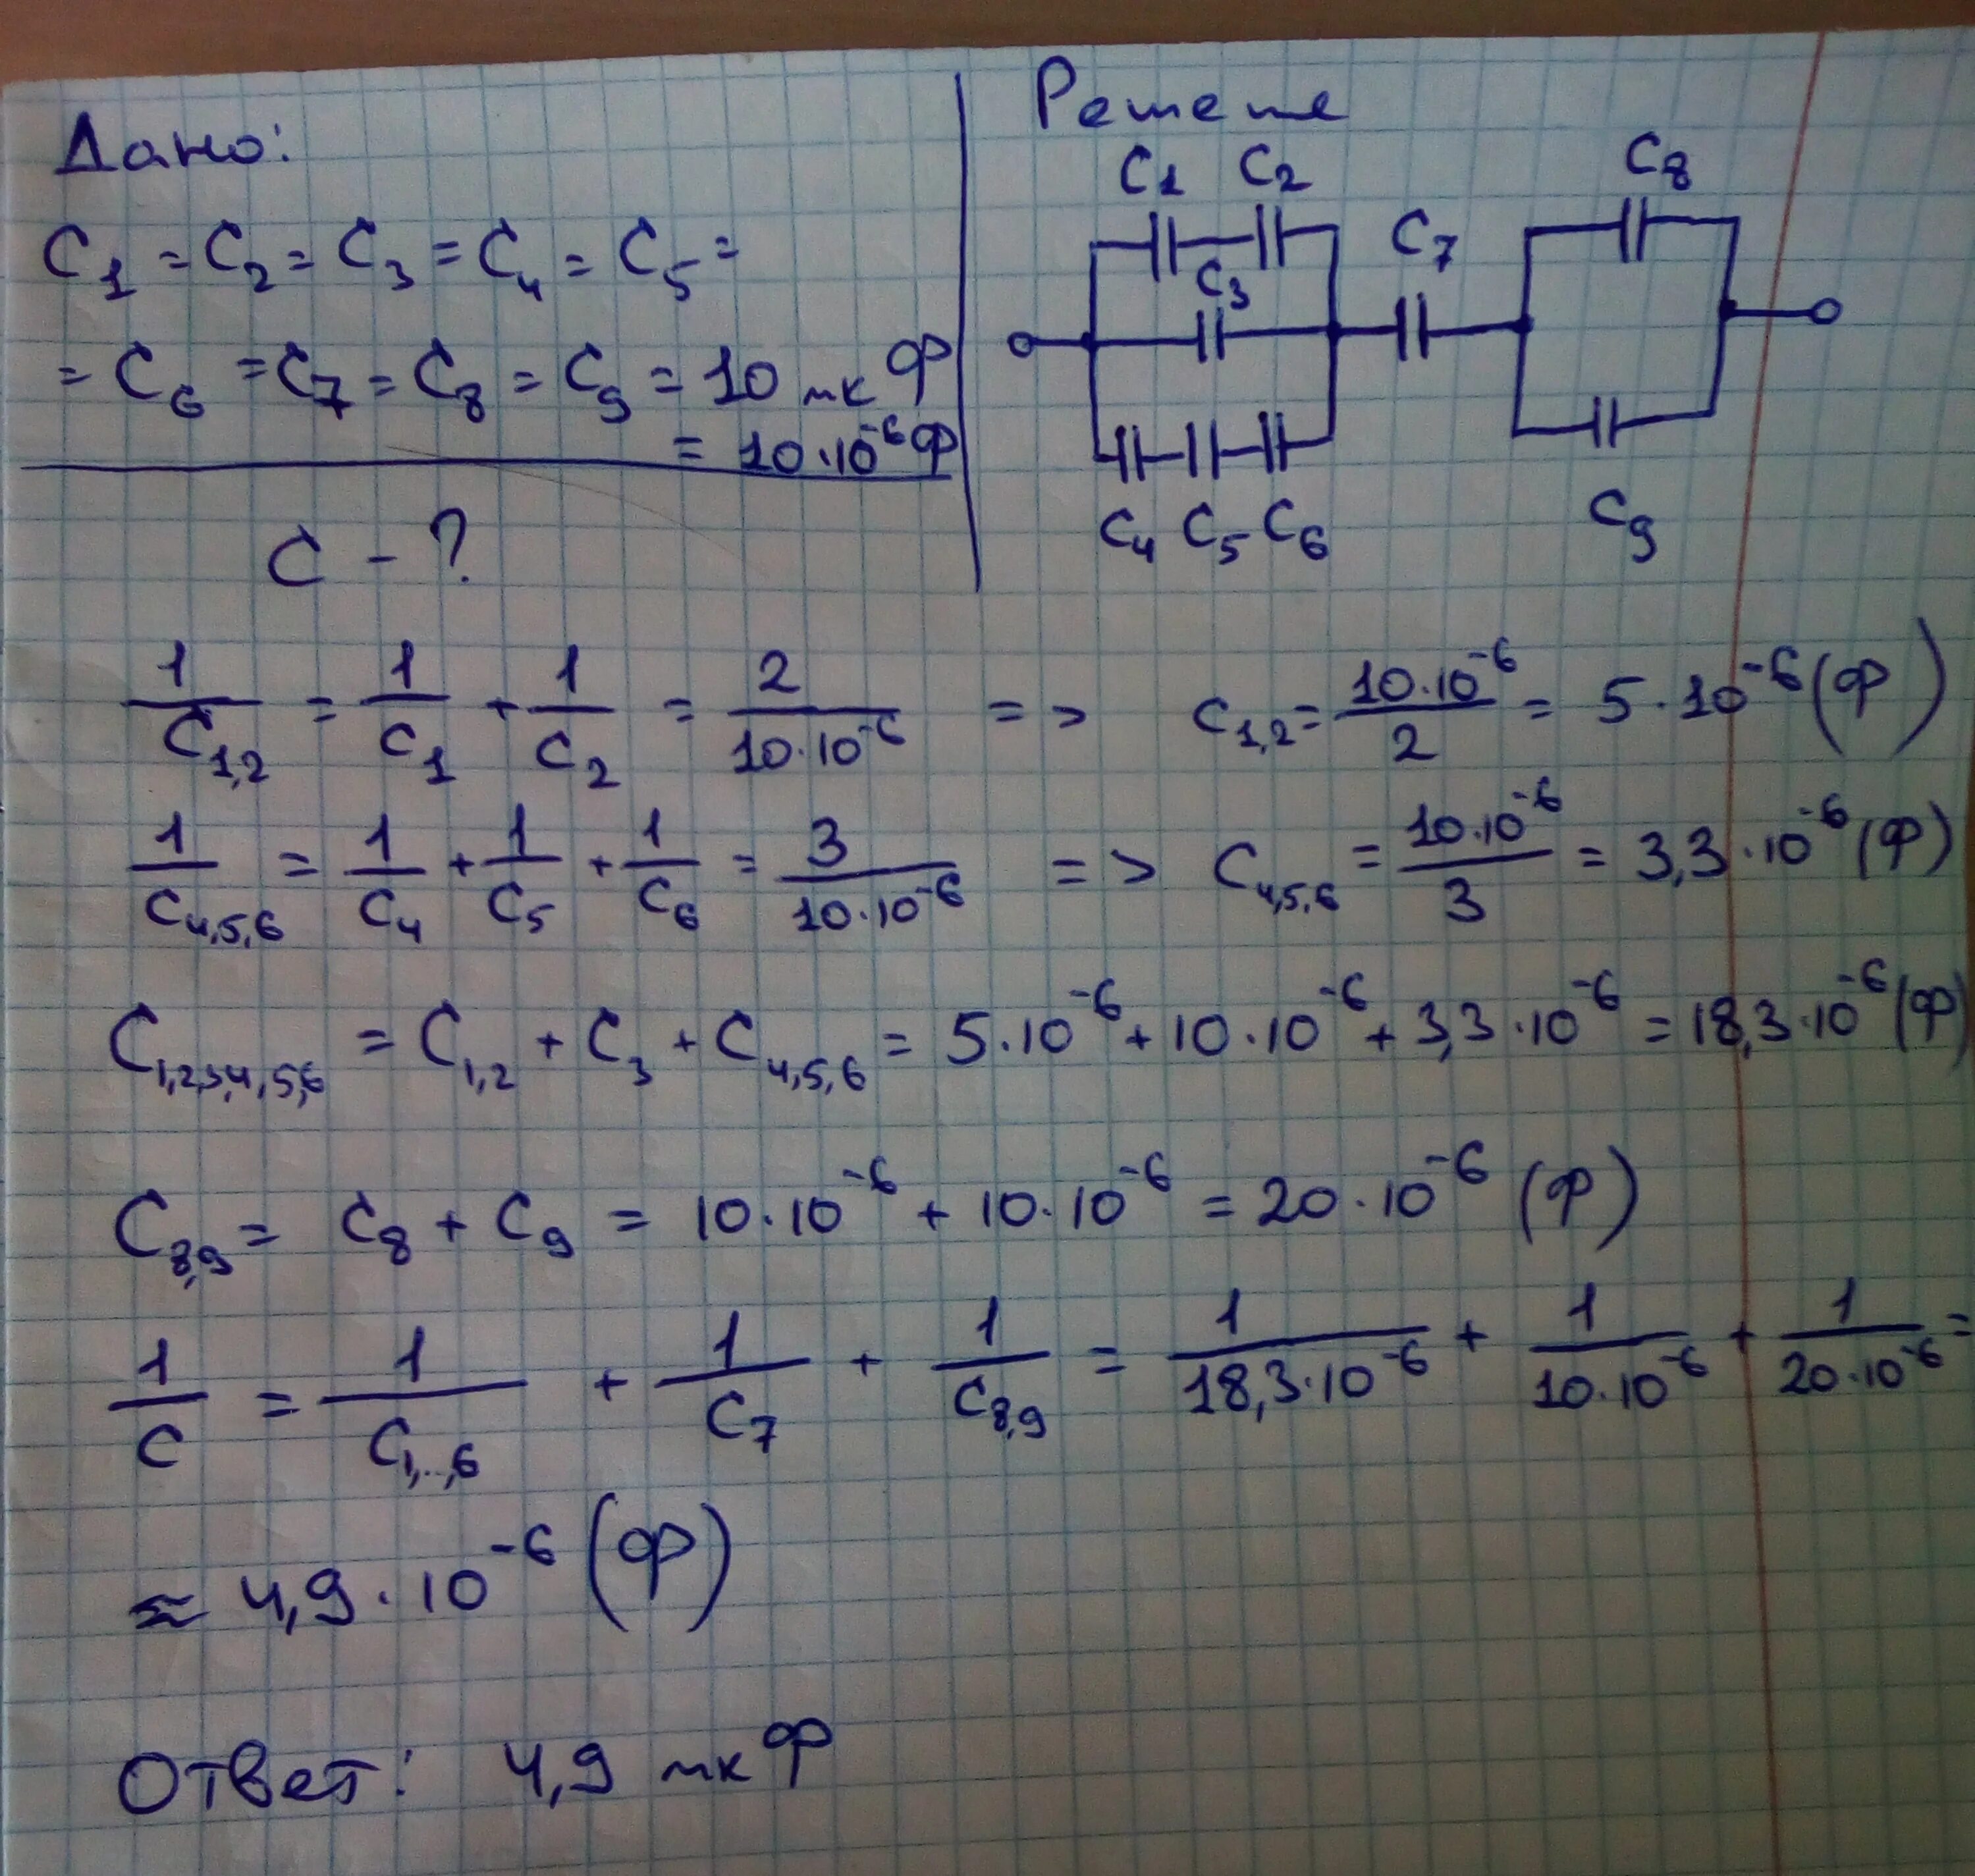 Дано:
C₁ = C₂ = C₃ = C₄ = C₅ =
= C₆ = C₇ = C₈ = C₉ = 10 мкФ
= 10·10⁻⁶Ф
C - ?
Решение
C₁ C₂
C₃
C₇
C₈
C₄ C₅ C₆
C₉
1/C₁,₂ = 1/C₁ + 1/C₂ = 2/(10·10⁻⁶) => C₁,₂ = (10·10⁻⁶)/2 = 5·10⁻⁶ (Ф)
1/C₄,₅,₆ = 1/C₄ + 1/C₅ + 1/C₆ = 3/(10·10⁻⁶) => C₄,₅,₆ = (10·10⁻⁶)/3 = 3,3·10⁻⁶ (Ф)
C₁,₂,₃,₄,₅,₆ = C₁,₂ + C₃ + C₄,₅,₆ = 5·10⁻⁶ + 10·10⁻⁶ + 3,3·10⁻⁶ = 18,3·10⁻⁶ (Ф)
C₈,₉ = C₈ + C₉ = 10·10⁻⁶ + 10·10⁻⁶ = 20·10⁻⁶ (Ф)
1/C = 1/C₁,..,₆ + 1/C₇ + 1/C₈,₉ = 1/(18,3·10⁻⁶) + 1/(10·10⁻⁶) + 1/(20·10⁻⁶) =
≈ 4,9·10⁻⁶ (Ф)
Ответ: 4,9 мкФ